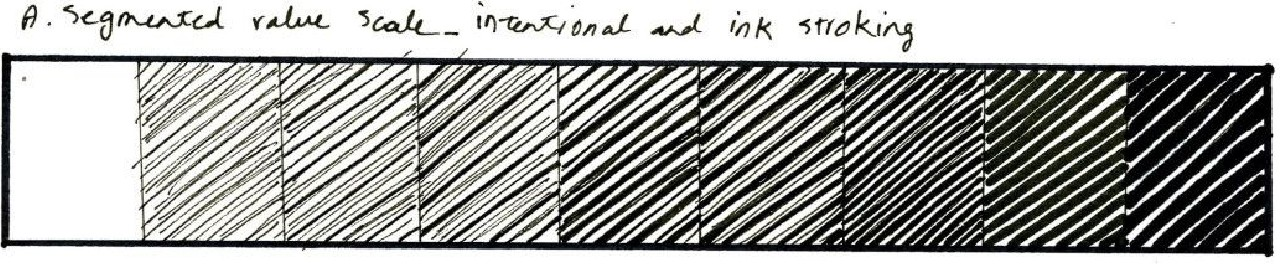 A. Segmented value scale_ intentional and ink stroking